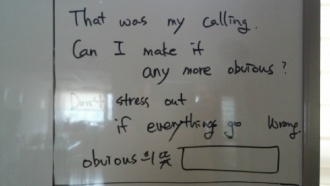 That was my calling.
Can I make it
any more obvious?
Don't stress out
if everythings go wrong.
obvious의